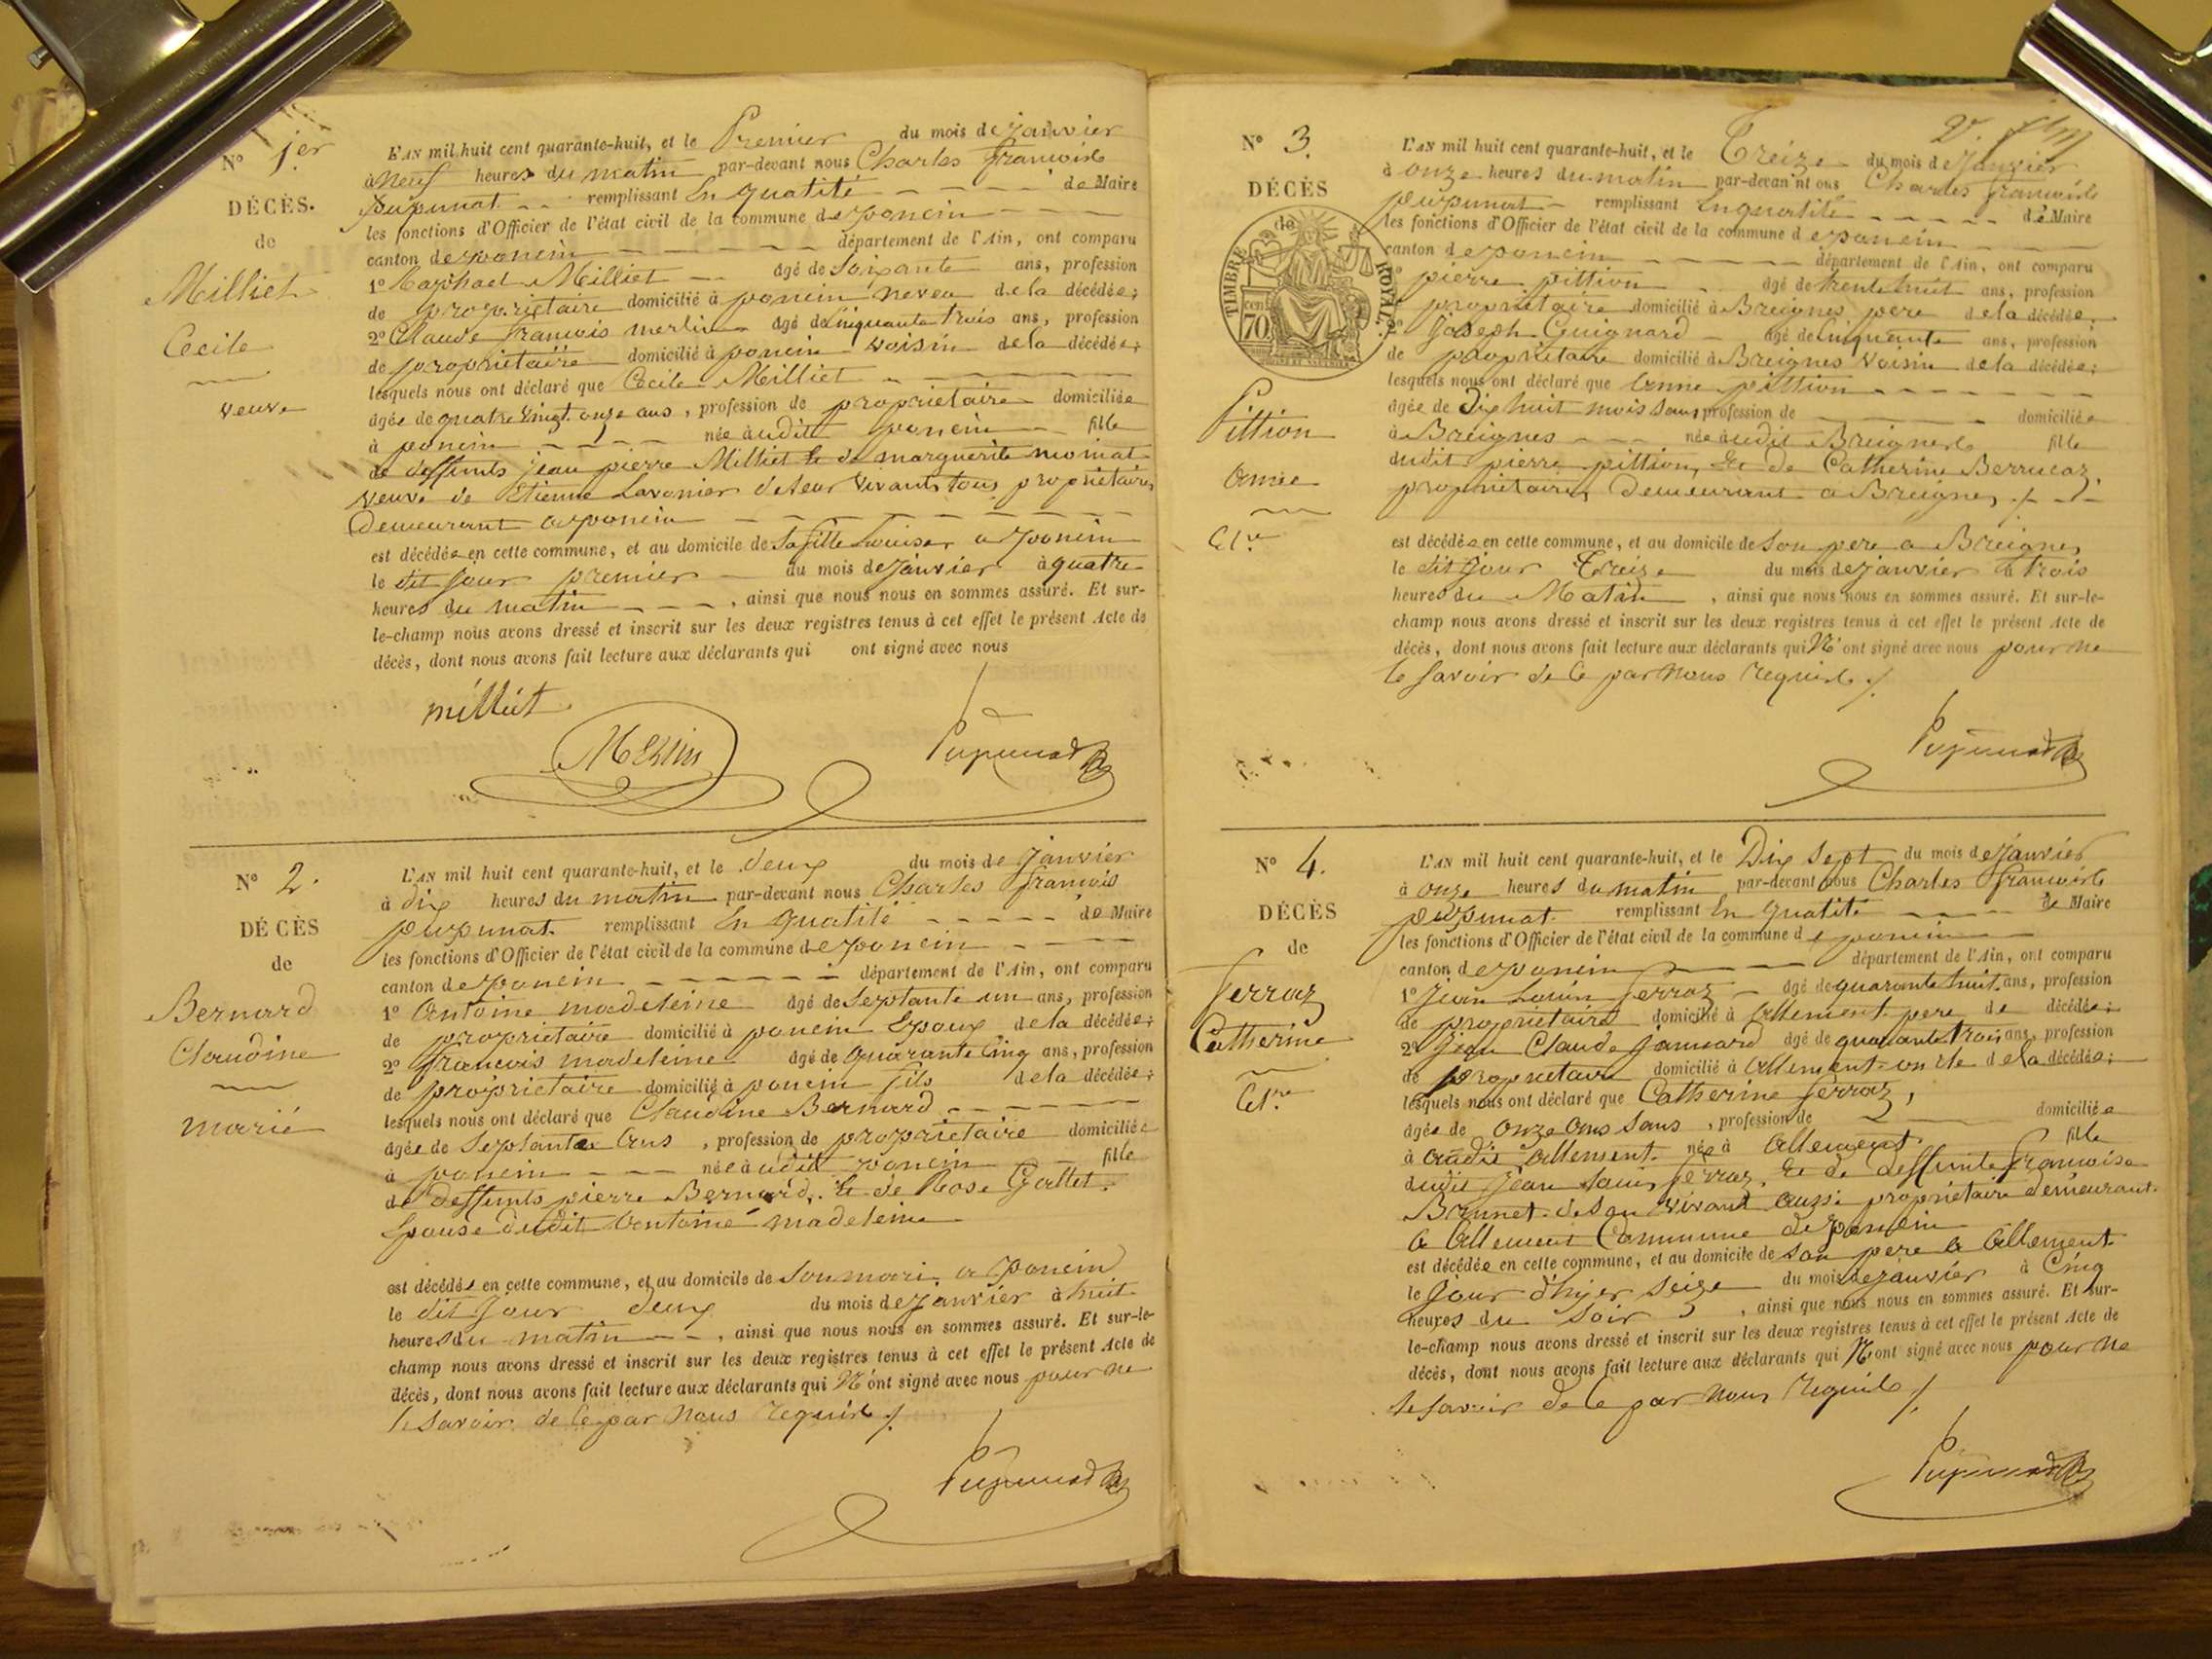 N° 1er
DÉCÈS.
de
Milliet
Cecile
veuve
L'AN mil huit cent quarante-huit, et le Premier du mois de janvier
à Neuf heures du matin par-devant nous Charles francois
pupunat remplissant En qualité de Maire
les fonctions d'Officier de l'état civil de la commune de poncin
canton de poncin département de l'Ain, ont comparu
1° Raphael Milliet âgé de Soixante ans, profession
de proprietaire domicilié à poncin neveu de la décédée;
2° Claude francois merlin âgé de Cinquante trois ans, profession
de proprietaire domicilié à poncin voisin de la décédée;
lesquels nous ont déclaré que Cecile Milliet
âgée de quatre vingt onze ans, profession de proprietaire domiciliée
à poncin née audit poncin fille
de deffunts jean pierre Milliet Et de marguerite
veuve de Etienne Lavonier de leur vivants tous proprietaires
Demeurant a poncin
est décédée en cette commune, et au domicile de Sa fille Louise a poncin
le dit jour premier du mois de janvier à quatre
heures du matin , ainsi que nous nous en sommes assuré. Et sur-
le-champ nous avons dressé et inscrit sur les deux registres tenus à cet effet le présent Acte de
décès, dont nous avons fait lecture aux déclarants qui ont signé avec nous
milliet
Merlin
Pupunat
N° 2.
DÉCÈS
de
Bernard
Claudine
marié
L'AN mil huit cent quarante-huit, et le deux du mois de Janvier
à dix heures du matin par-devant nous Charles francois
pupunat remplissant En qualité de Maire
les fonctions d'Officier de l'état civil de la commune de poncin
canton de poncin département de l'Ain, ont comparu
1° Antoine madeleine âgé de Septante un ans, profession
de proprietaire domicilié à poncin Epoux de la décédée;
2° francois madeleine âgé de quarante Cinq ans, profession
de proprietaire domicilié à poncin fils de la décédée;
lesquels nous ont déclaré que Claudine Bernard
âgée de Septante Ans , profession de proprietaire domiciliée
à poncin née audit poncin fille
de deffunts pierre Bernard, Et de Rose Gallet.
Epouse dudit Antoine madeleine
est décédée en cette commune, et au domicile de Son mari a Poncin
le dit Jour deux du mois de Janvier à huit
heures du matin , ainsi que nous nous en sommes assuré. Et sur-le-
champ nous avons dressé et inscrit sur les deux registres tenus à cet effet le présent Acte de
décès, dont nous avons fait lecture aux déclarants qui N'ont signé avec nous pour ne
le Savoir de Ce par Nous requis /.
Pupunat
N° 3.
DÉCÈS
de
TIMBRE ROYAL.
70 cent
Pittion
Annee
Cel.re
L'AN mil huit cent quarante-huit, et le Treize du mois de Janvier
à onze heures du matin par-devan'nt ous Charles francois
pupunat remplissant En qualité de Maire
les fonctions d'Officier de l'état civil de la commune de poncin
canton de poncin département de l'Ain, ont comparu
1° pierre pittion âgé de trente huit ans, profession
de proprietaire domicilié à Breignes pere de la décédée;
2° joseph Guignard âgé de Cinquante ans, profession
de proprietaire domicilié à Breignes Voisin de la décédée;
lesquels nous ont déclaré que Anne pittion
âgée de Dix huit mois Sans profession de domiciliée
à Breignes née audit Breignes fille
dudit pierre pittion, Et de Catherine Berrucaz,
proprietaires Demeurant a Breignes /.
est décédée en cette commune, et au domicile de Son pere a Breignes
le dit Jour Treize du mois de janvier à trois
heures du Matin , ainsi que nous nous en sommes assuré. Et sur-le-
champ nous avons dressé et inscrit sur les deux registres tenus à cet effet le présent Acte de
décès, dont nous avons fait lecture aux déclarants qui N'ont signé avec nous pour ne
le Savoir de Ce par Nous requis /.
Pupunat
N° 4.
DÉCÈS
de
Ferraz
Catherine
Cel.re
L'AN mil huit cent quarante-huit, et le Dix Sept du mois de Janvier
à onze heures du matin par-devant nous Charles francois
pupunat remplissant En qualité de Maire
les fonctions d'Officier de l'état civil de la commune de poncin
canton de poncin département de l'Ain, ont comparu
1° Jean Louis ferraz âgé de quarante huit ans, profession
de proprietaire domicilié à Allement pere de décédée;
2° Jean Claude âgé de quarante trois ans, profession
de proprietaire domicilié à Allement oncle de la décédée;
lesquels nous ont déclaré que Catherine ferraz,
âgée de onze ans Sans , profession de domiciliée
à audit Allement née à Allement fille
dudit Jean Louis ferraz, Et de deffunte francoise
Brunet de Son vivant aussi proprietaire demeurant
a Allement Commune de poncin
est décédée en cette commune, et au domicile de Son pere a Allement
le Jour d'hyer Seize du mois de janvier à Cinq
heures du Soir , ainsi que nous nous en sommes assuré. Et sur-
le-champ nous avons dressé et inscrit sur les deux registres tenus à cet effet le présent Acte de
décès, dont nous avons fait lecture aux déclarants qui N'ont signé avec nous pour ne
le Savoir de Ce par Nous requis /.
Pupunat